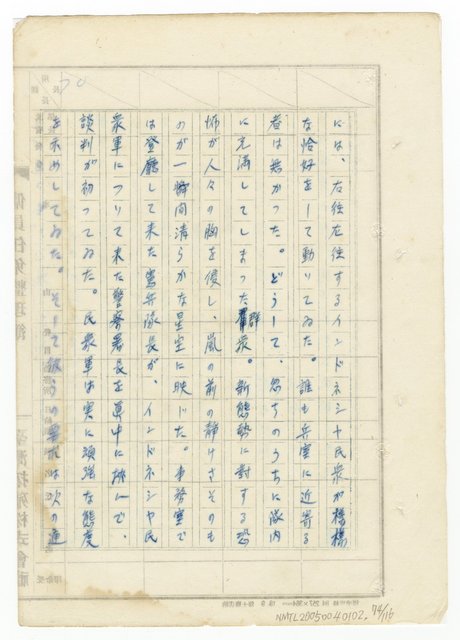 には、右往左往するインドネシヤ民衆が様様
な恰好をして動いてゐた。誰も兵室に近寄る
者は無かった。どうして、忽ちのうちに隊内
に充満してしまった群衆。新態勢に対する恐
怖が人々の胸を侵し、嵐の前の静けさそのも
のが一瞬間清らかな星空に映じた。事務室で
は登廳して来た憲兵隊長が、インドネシヤ民
衆軍について来た警察署長を真中に挟んで、
談判が初ってゐた。民衆軍は実に頑強な態度
を示めしてゐた。そして彼らの要求は次の通
NMTL20050040102
74/116